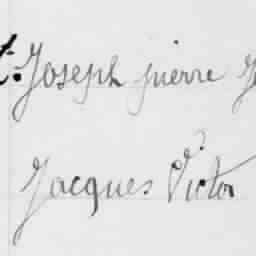 t. Joseph pierre
Jacques Victor